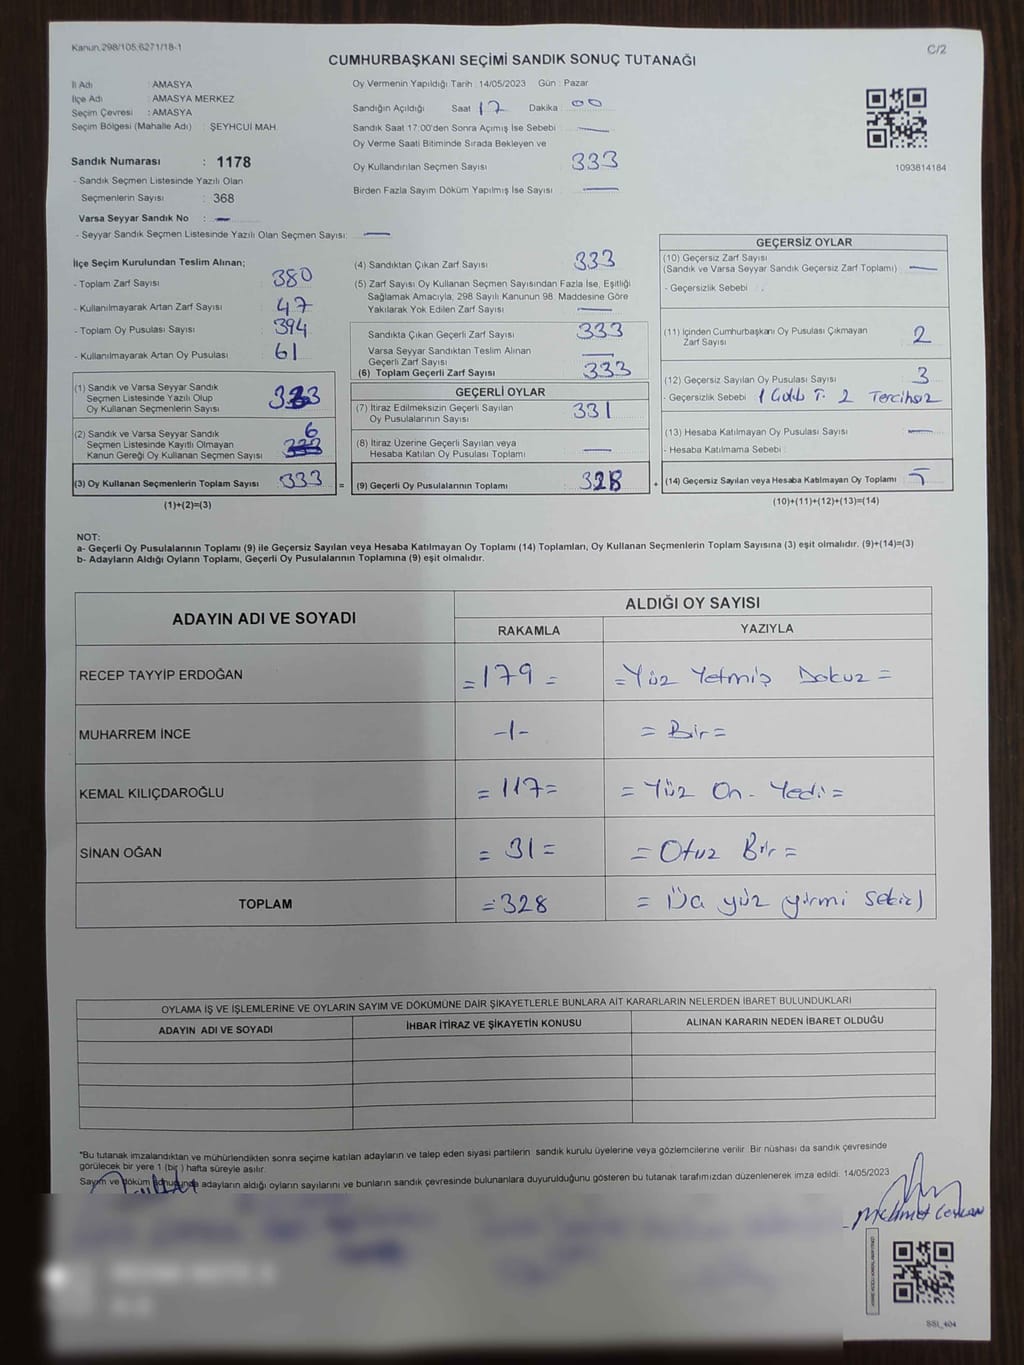 Kanun.298/105;6271/18-1
C/2
CUMHURBAŞKANI SEÇİMİ SANDIK SONUÇ TUTANAĞI
İl Adı : AMASYA
İlçe Adı : AMASYA MERKEZ
Seçim Çevresi : AMASYA
Seçim Bölgesi (Mahalle Adı) : ŞEYHCUİ MAH.
Oy Vermenin Yapıldığı Tarih : 14/05/2023 Gün : Pazar
Sandığın Açıldığı Saat 17 Dakika : 00
Sandık Saat 17:00'den Sonra Açımış İse Sebebi : —
Oy Verme Saati Bitiminde Sırada Bekleyen ve
Oy Kullandırılan Seçmen Sayısı : 333
Birden Fazla Sayım Döküm Yapılmış İse Sayısı : —
1093814184
Sandık Numarası : 1178
- Sandık Seçmen Listesinde Yazılı Olan
Seçmenlerin Sayısı : 368
Varsa Seyyar Sandık No : —
- Seyyar Sandık Seçmen Listesinde Yazılı Olan Seçmen Sayısı: —
İlçe Seçim Kurulundan Teslim Alınan;
- Toplam Zarf Sayısı : 380
- Kullanılmayarak Artan Zarf Sayısı : 47
- Toplam Oy Pusulası Sayısı : 394
- Kullanılmayarak Artan Oy Pusulası : 61
(1) Sandık ve Varsa Seyyar Sandık
Seçmen Listesinde Yazılı Olup
Oy Kullanan Seçmenlerin Sayısı
(2) Sandık ve Varsa Seyyar Sandık 6
Seçmen Listesinde Kayıtlı Olmayan
Kanun Gereği Oy Kullanan Seçmen Sayısı
(3) Oy Kullanan Seçmenlerin Toplam Sayısı 333 =
(1)+(2)=(3)
(4) Sandıktan Çıkan Zarf Sayısı 333
(5) Zarf Sayısı Oy Kullanan Seçmen Sayısından Fazla İse, Eşitliği
Sağlamak Amacıyla; 298 Sayılı Kanunun 98. Maddesine Göre
Yakılarak Yok Edilen Zarf Sayısı : —
Sandıkta Çıkan Geçerli Zarf Sayısı : 333
Varsa Seyyar Sandıktan Teslim Alınan
Geçerli Zarf Sayısı : —
(6) Toplam Geçerli Zarf Sayısı : 333
GEÇERLİ OYLAR
(7) İtiraz Edilmeksizin Geçerli Sayılan
Oy Pusulalarının Sayısı 331
(8) İtiraz Üzerine Geçerli Sayılan veya
Hesaba Katılan Oy Pusulası Toplamı —
(9) Geçerli Oy Pusulalarının Toplamı 328 +
GEÇERSİZ OYLAR
(10) Geçersiz Zarf Sayısı
(Sandık ve Varsa Seyyar Sandık Geçersiz Zarf Toplamı) —
- Geçersizlik Sebebi :
(11) İçinden Cumhurbaşkanı Oy Pusulası Çıkmayan
Zarf Sayısı 2
(12) Geçersiz Sayılan Oy Pusulası Sayısı 3
- Geçersizlik Sebebi 1 2 Tercihsiz
(13) Hesaba Katılmayan Oy Pusulası Sayısı —
- Hesaba Katılmama Sebebi :
(14) Geçersiz Sayılan veya Hesaba Katılmayan Oy Toplamı 5
(10)+(11)+(12)+(13)=(14)
NOT:
a- Geçerli Oy Pusulalarının Toplamı (9) ile Geçersiz Sayılan veya Hesaba Katılmayan Oy Toplamı (14) Toplamları, Oy Kullanan Seçmenlerin Toplam Sayısına (3) eşit olmalıdır. (9)+(14)=(3)
b- Adayların Aldığı Oyların Toplamı, Geçerli Oy Pusulalarının Toplamına (9) eşit olmalıdır.
ADAYIN ADI VE SOYADI
ALDIĞI OY SAYISI
RAKAMLA YAZIYLA
RECEP TAYYİP ERDOĞAN =179= =Yüz Yetmiş Dokuz=
MUHARREM İNCE -1- =Bir=
KEMAL KILIÇDAROĞLU =117= =Yüz On-Yedi=
SİNAN OĞAN =31= =Otuz Bir=
TOPLAM =328 = yüz yirmi sekiz)
OYLAMA İŞ VE İŞLEMLERİNE VE OYLARIN SAYIM VE DÖKÜMÜNE DAİR ŞİKAYETLERLE BUNLARA AİT KARARLARIN NELERDEN İBARET BULUNDUKLARI
ADAYIN ADI VE SOYADI İHBAR İTİRAZ VE ŞİKAYETİN KONUSU ALINAN KARARIN NEDEN İBARET OLDUĞU
*Bu tutanak imzalandıktan ve mühürlendikten sonra seçime katılan adayların ve talep eden siyasi partilerin sandık kurulu üyelerine veya gözlemcilerine verilir. Bir nüshası da sandık çevresinde
görülecek bir yere 1 (bir ) hafta süreyle asılır.
Sayım ve döküm sonucunda adayların aldığı oyların sayılarını ve bunların sandık çevresinde bulunanlara duyurulduğunu gösteren bu tutanak tarafımızdan düzenlenerek imza edildi. 14/05/2023
Mehmet Ceylan
SSI_404